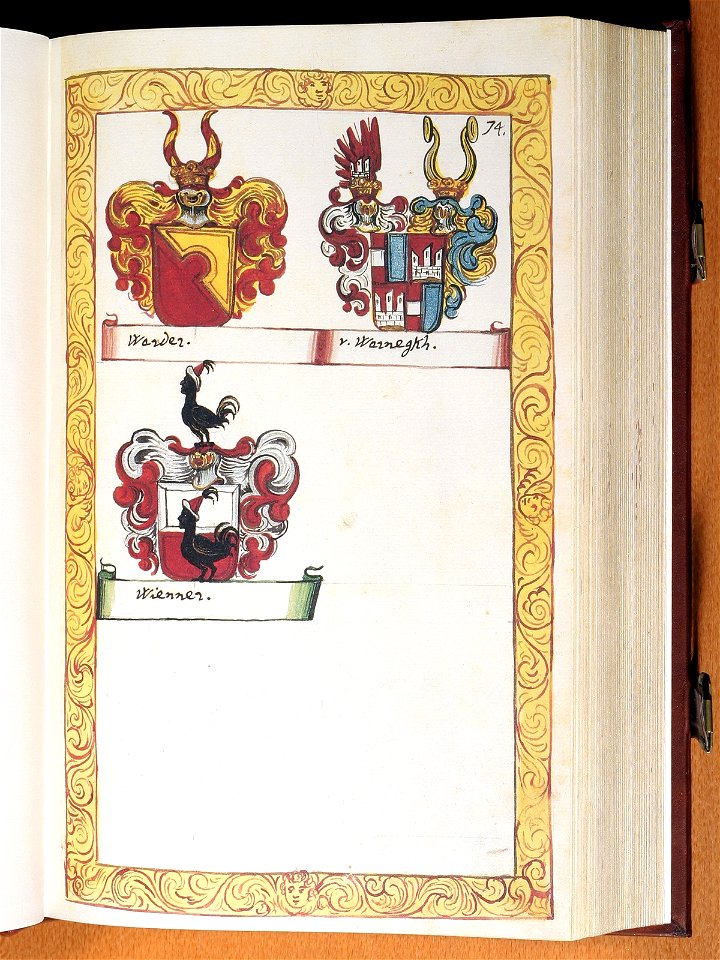 74.
Warder.
v. Warnegkh.
Wienner.